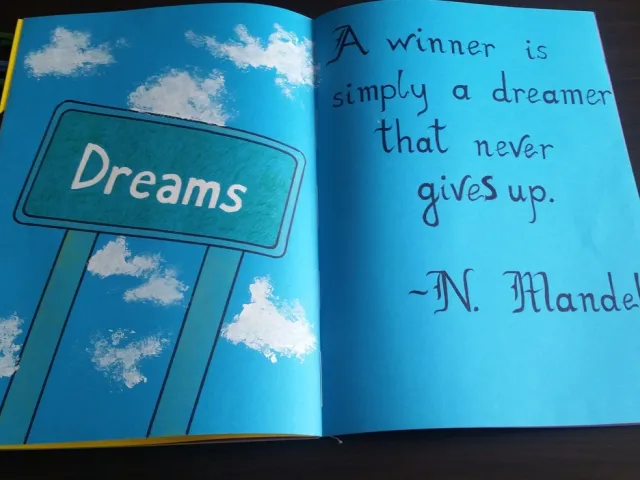 Dreams
A winner is
simply a dreamer
that never
gives up.
~N. Mandel